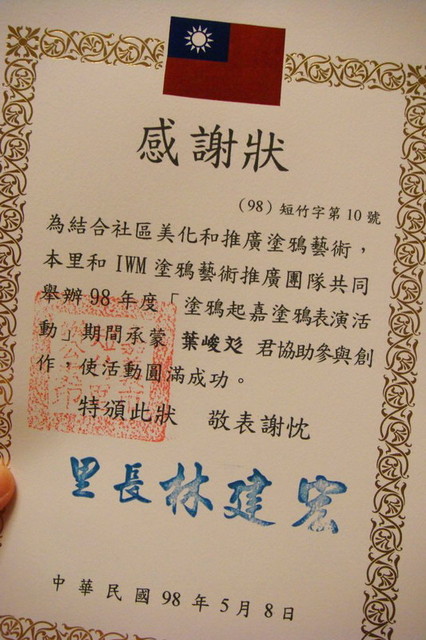 感謝狀
(98) 短竹字第10號
為結合社區美化和推廣塗鴉藝術，
本里和IWM塗鴉藝術推廣團隊共同
舉辦98年度「塗鴉起嘉塗鴉表演活
動」期間承蒙 葉峻彣 君協助參與創
作，使活動圓滿成功。
特頒此狀 敬表謝忱
里長林建宏
中華民國98年5月8日